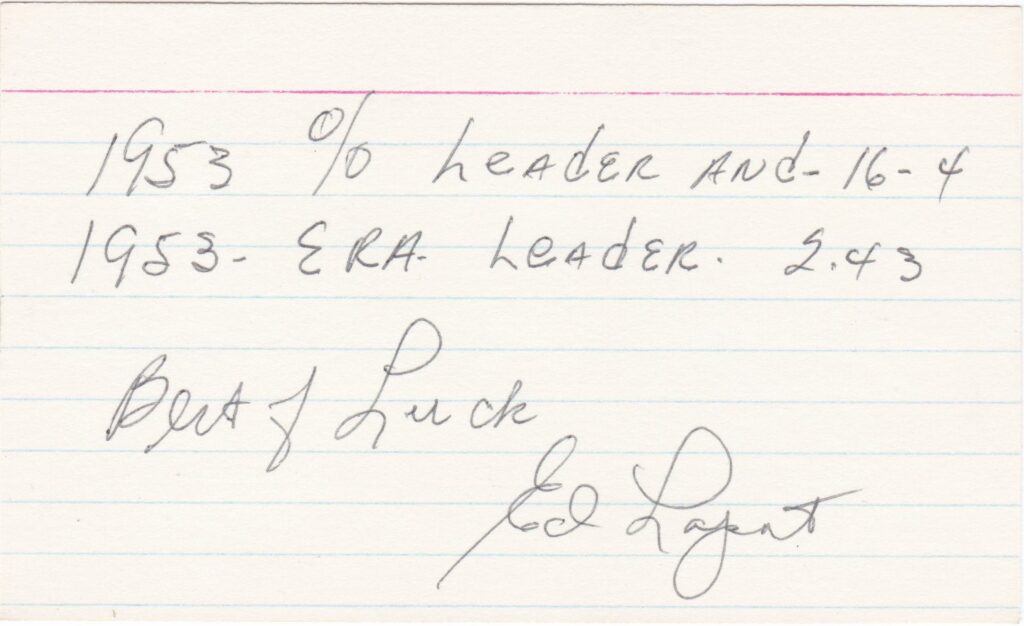 1953 % LEADER AND- 16-4
1953- ERA- LEADER. 2.43
Best of Luck
Ed Lopat